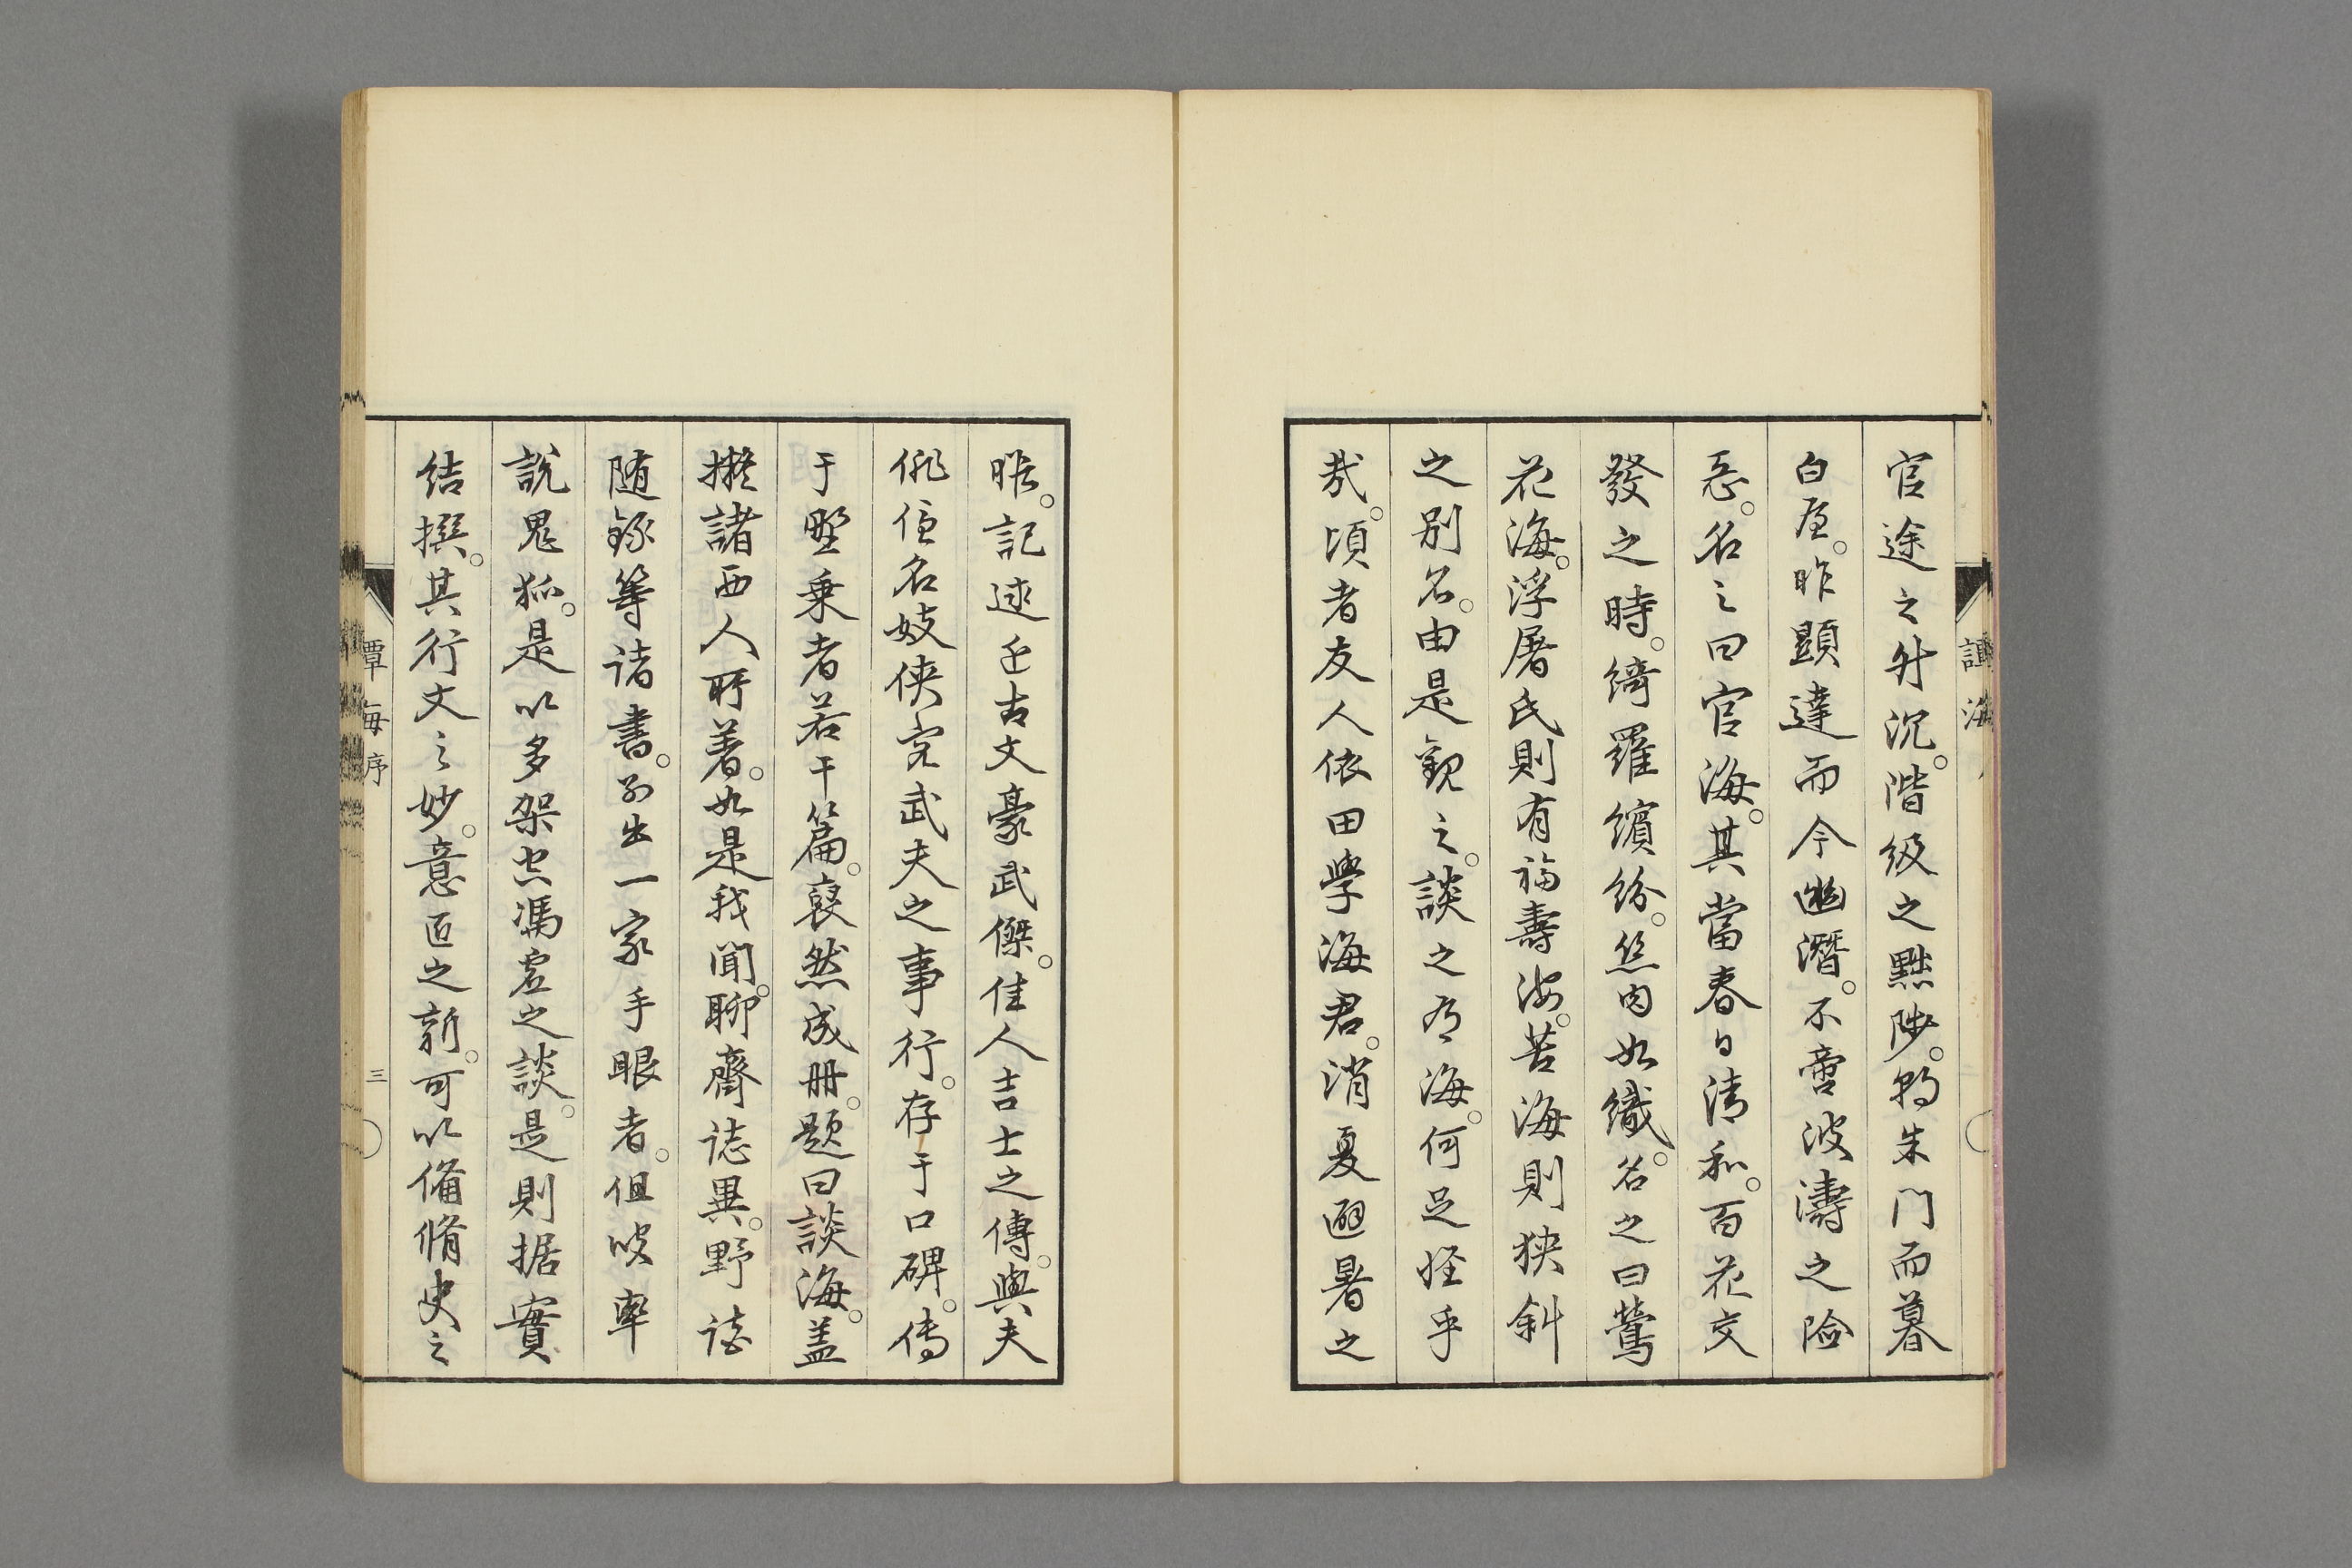 譚海
官途之升沉。階級之黜陟。朝朱門而暮
白屋。昨顯達而今幽潛。不啻波濤之險
惡。名之曰官海。其當春日清和。百花交
發之時。綺羅繽紛。絲肉如織。名之曰鶯
花海。浮屠氏則有福壽海。苦海則狹斜
之別名。由是觀之。談之為海。何足怪乎
哉。頃者友人依田學海君。消夏避暑之
暇。記述近古文豪武傑。佳人吉士之傳。與夫
俳優名妓俠客武夫之事行。存于口碑。傳
于野乘者若干篇。裒然成冊。題曰談海。蓋
擬諸西人所著。如是我聞。聊齋誌異。野語
随錄等諸書。別出一家手眼者。但彼率
說鬼狐。是以多架空馮虛之談。是則据實
結撰。其行文之妙。意匠之新。可以備脩史之
譚海序
三